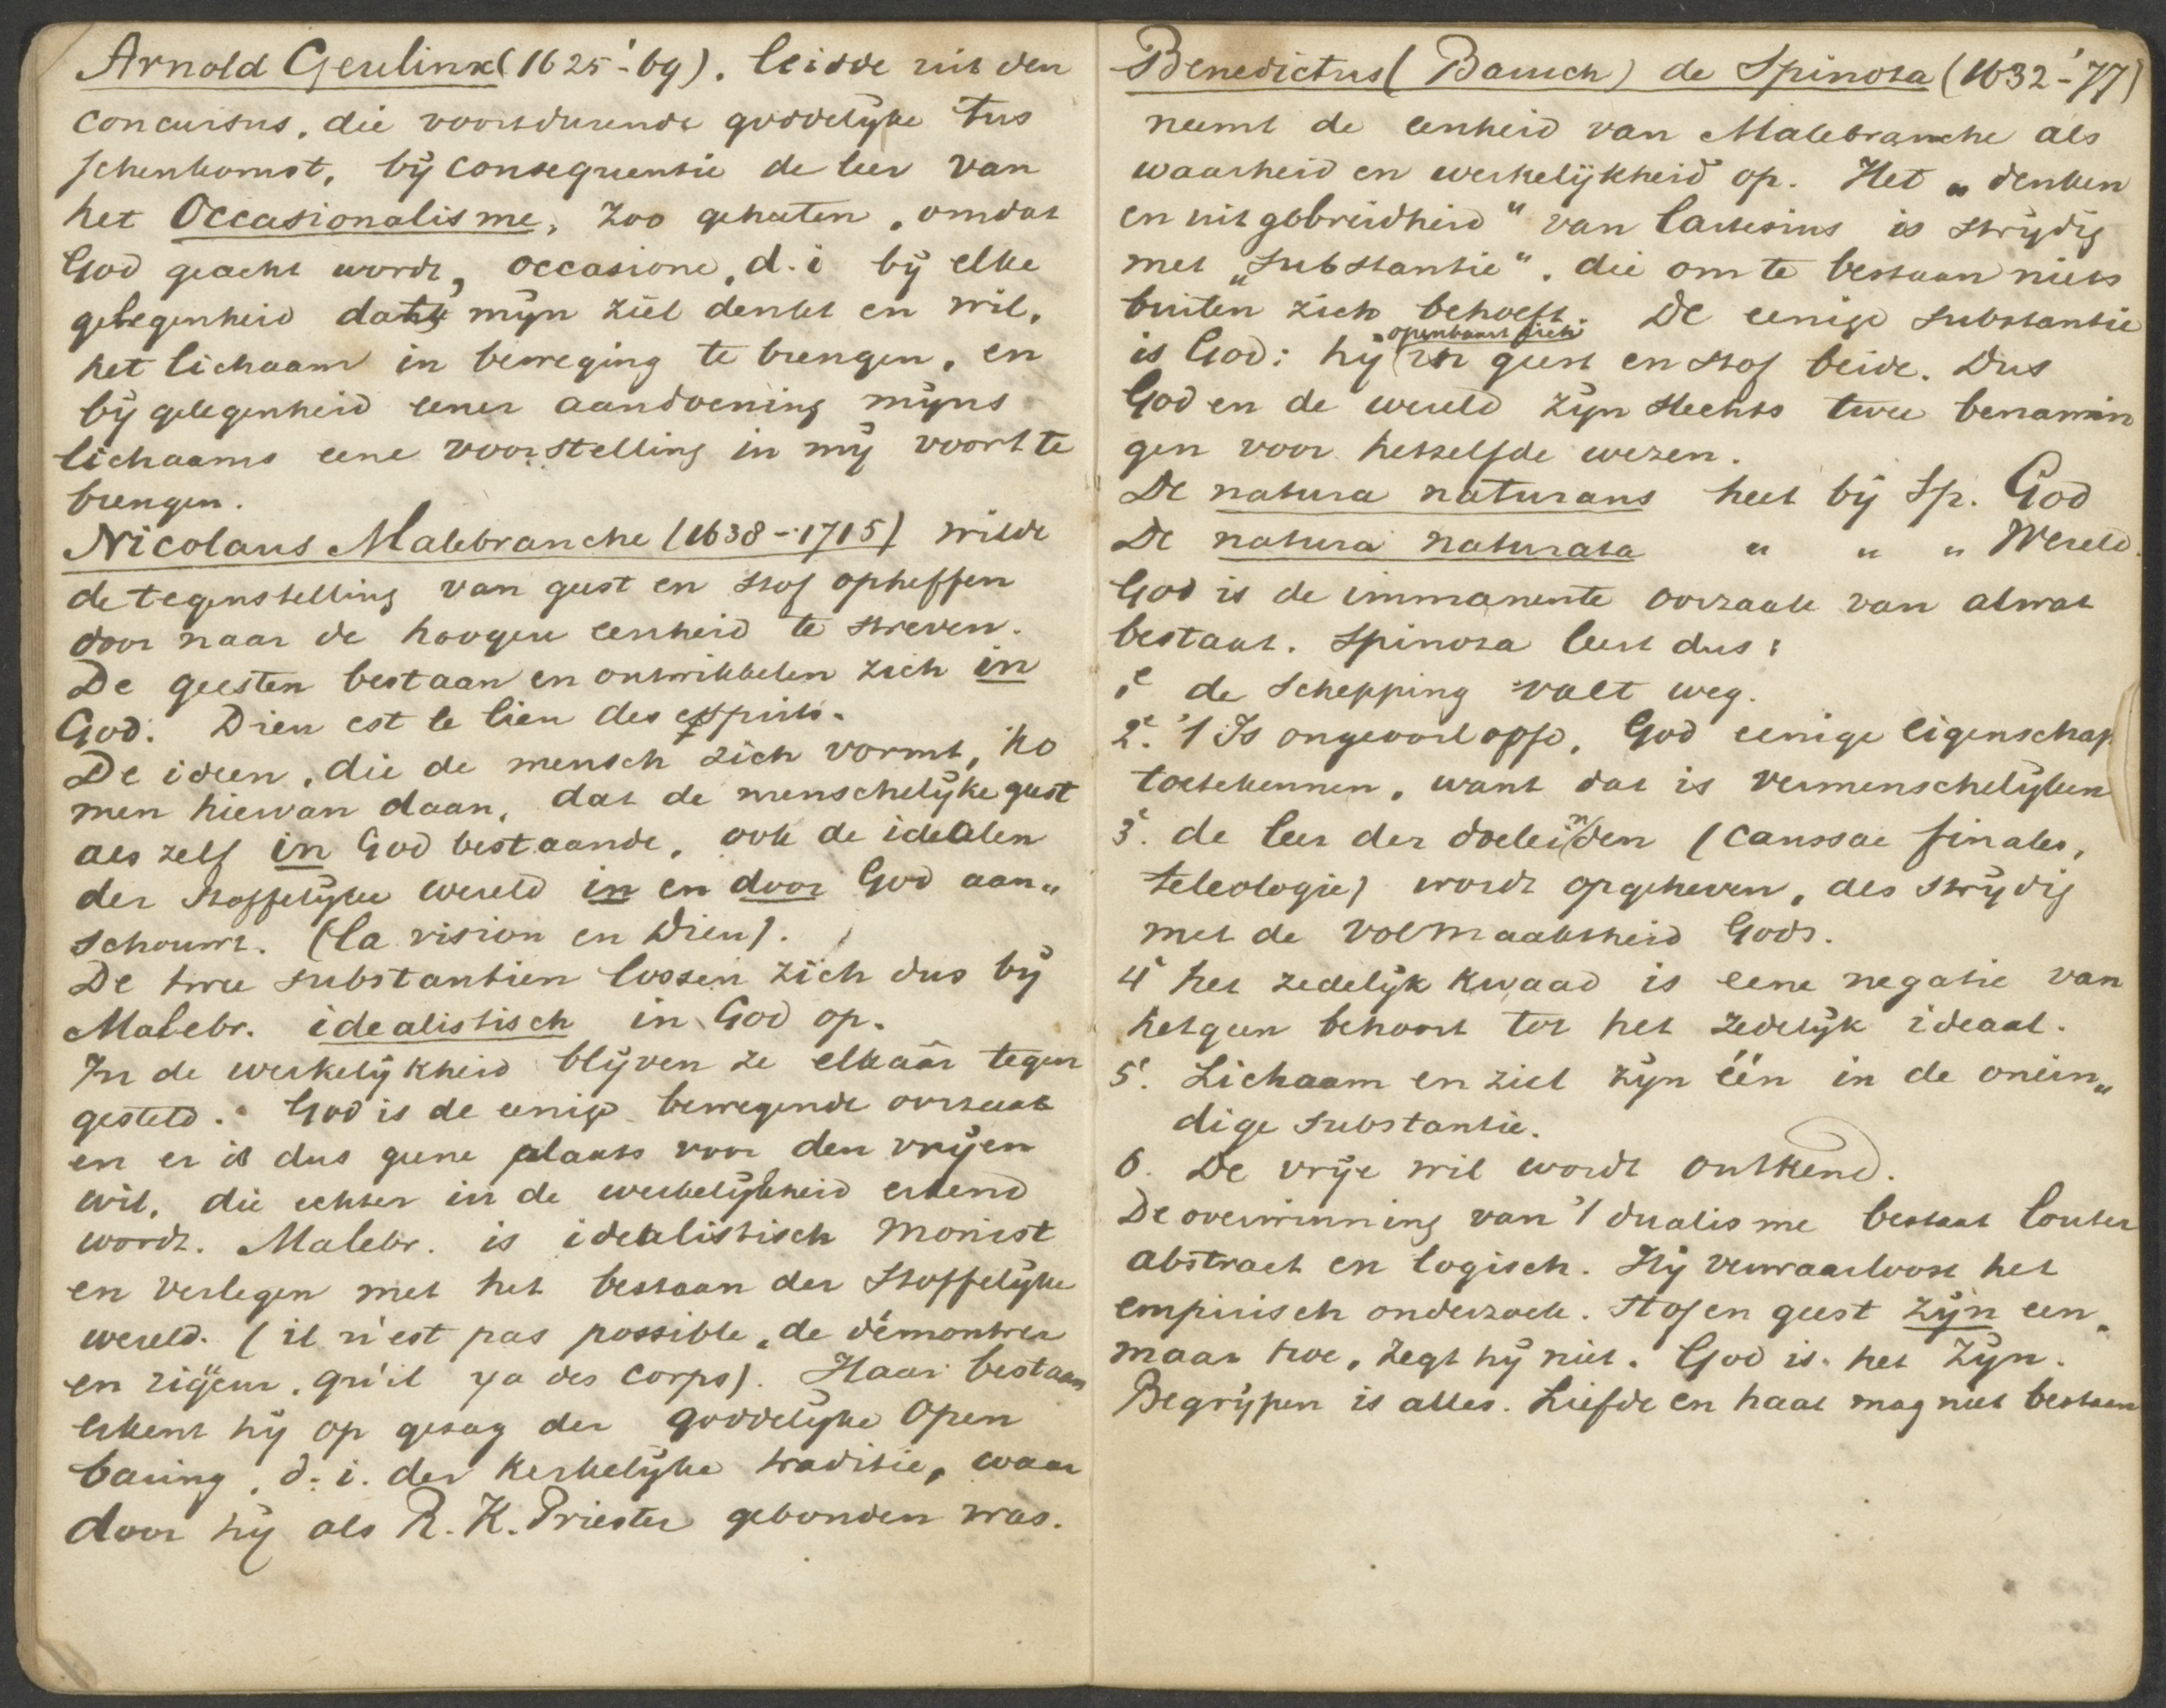 Arnold Geulinx (1625-'69). leidde uit den
concursus, die voortdurende goddelyke tus
schenkomst, bij consequentie de leer van
het Occasionalisme, zoo geheeten, omdat
God geacht wordt, occasione, d.i bij elke
gelegenheid dat mijn ziel denkt en wil,
het lichaam in beweging te brengen, en
bij gelegenheid eener aandoening mijns
lichaams eene voorstelling in mij voort te
brengen.
Nicolaus Malebranche (1638-1715) wilde
de tegenstelling van geest en stof opheffen
door naar de hoogere eenheid te streven.
De geesten bestaan en ontwikkelen zich in
God. Dieu est le lieu des esprits.
De ideen, die de mensch zich vormt, ko
men hiervan daan, dat de menschelijke geest
als zelf in God bestaande, ook de idealen
der stoffelijke wereld in en door God aan„
schouwt. (la vision en Dieu).
De twee substantien lossen zich dus bij
Malebr. idealistisch in God op.
In de werkelijkheid blijven ze elkaâr tegen
gesteld. God is de eenige bewegende oorzaak
en er is dus geene plaats voor den vrijen
wil, die echter in de werkelijkheid erkend
wordt. Malebr. is idealistisch Monist
en verlegen met het bestaan der stoffelijke
wereld. (il n'est pas possible, de démontrer
en rigeur, qu'il y a des corps). Haar bestaan
erkent hij op gezag der goddelijke Open
baring, d.i. der Kerkelijke traditie, waar
door hij als R.K. Priester gebonden was.
Benedictus (Baruch) de Spinoza (1632-'77)
neemt de eenheid van Malebranche als
waarheid en werkelijkheid op. Het „denken
en uitgebreidheid" van Cartesius is strijdig
met „substantie", die om te bestaan niets
buiten zich behoeft. De eenige substantie
is God: hij openbaart zich in geest en stof beide. Dus
God en de wereld zijn slechts twee benamin
gen voor hetzelfde wezen.
De natura naturans heet bij Sp. God
De natura naturata " " " Wereld.
God is de immanente oorzaak van alwat
bestaat. Spinoza leert dus:
1e de Schepping valt weg.
2e. 't Is ongeoorloofd, God eenige eigenschap
toetekennen, want dat is vermenschelijken
3e. de leer der doeleinden (caussae finales,
teleologie) wordt opgeheven, als strijdig
met de volmaaktheid Gods.
4e het zedelijk kwaad is eene negatie van
hetgeen behoort tot het zedelijk ideaal.
5e. Lichaam en ziel zijn één in de onein„
dige substantie.
6. De vrije wil wordt ontkend.
De overwinning van 't dualisme bestaat louter
abstract en logisch. Hij verwaarloost het
empirisch onderzoek. Stof en geest zijn een.
maar twe, zegt hij niet. God is het Zijn.
Begrijpen is alles. Liefde en haat mag niet bestaan